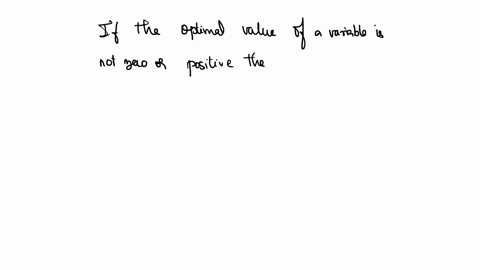 If the optimal value of a variable is
not zero or positive the